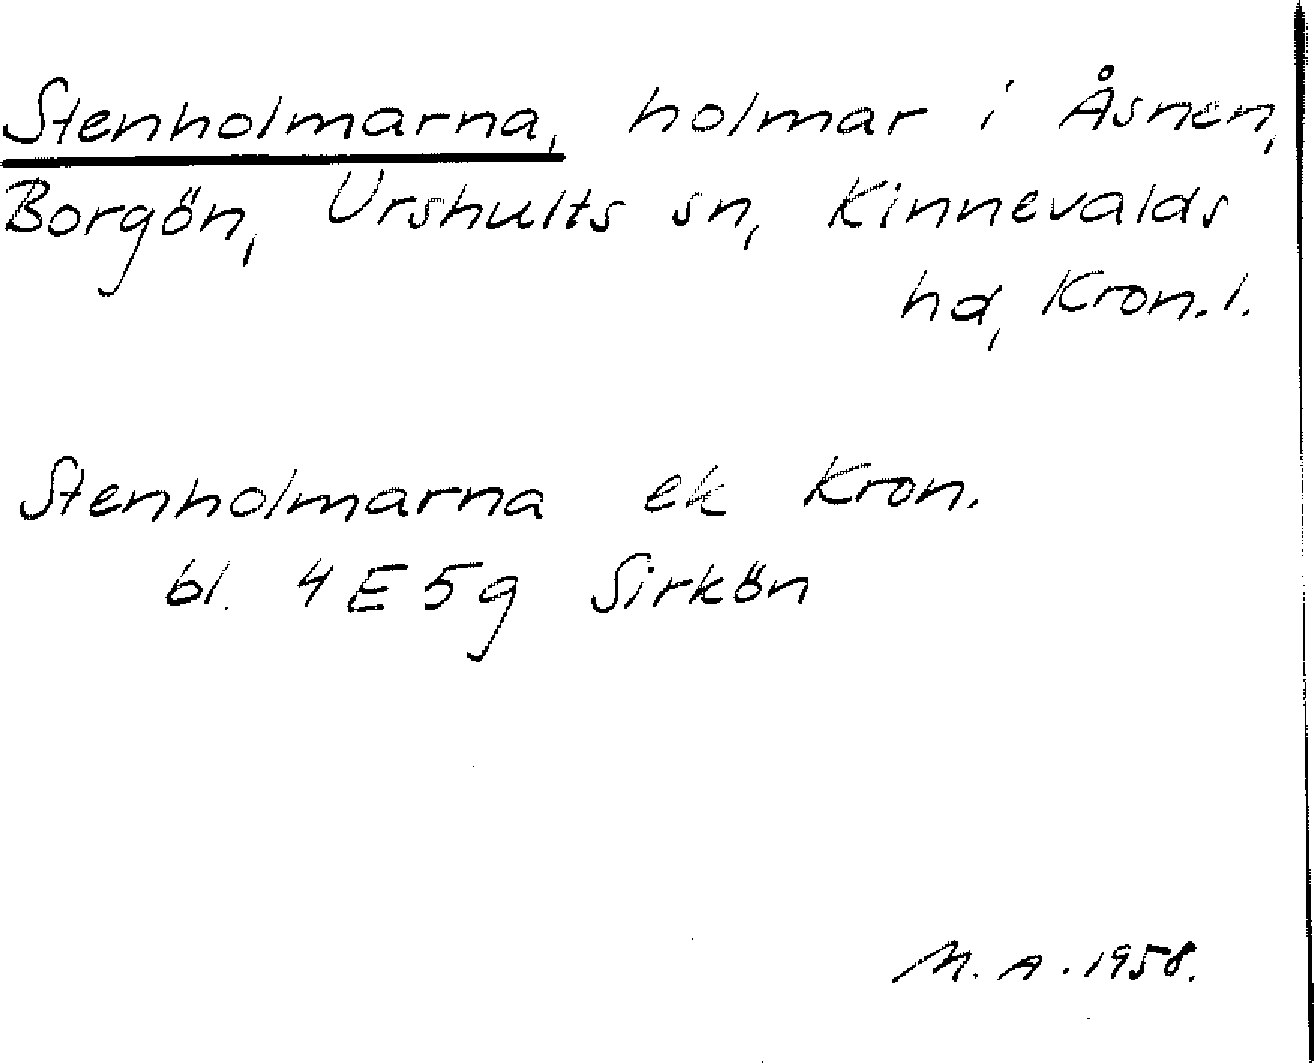 Stenholmarna, holmar i Åsnen,
Borgön, Urshults sn, Kinnevalds
hd, Kron. l.
Stenholmarna ek Kron.
bl. 4E5g Sirkön
M. A. 1958.